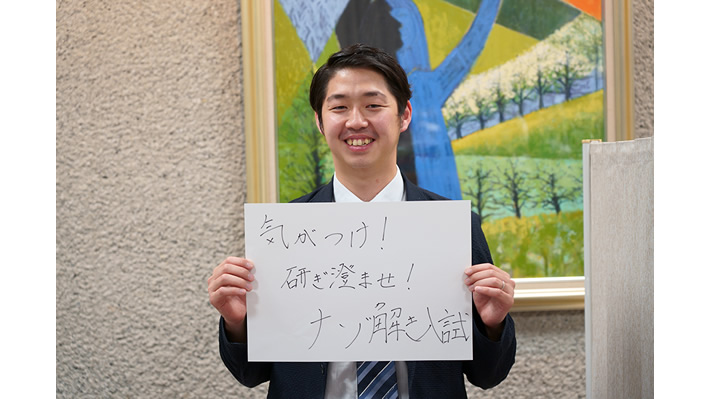 気がつけ!
研ぎ澄ませ!
ナゾ解き入試